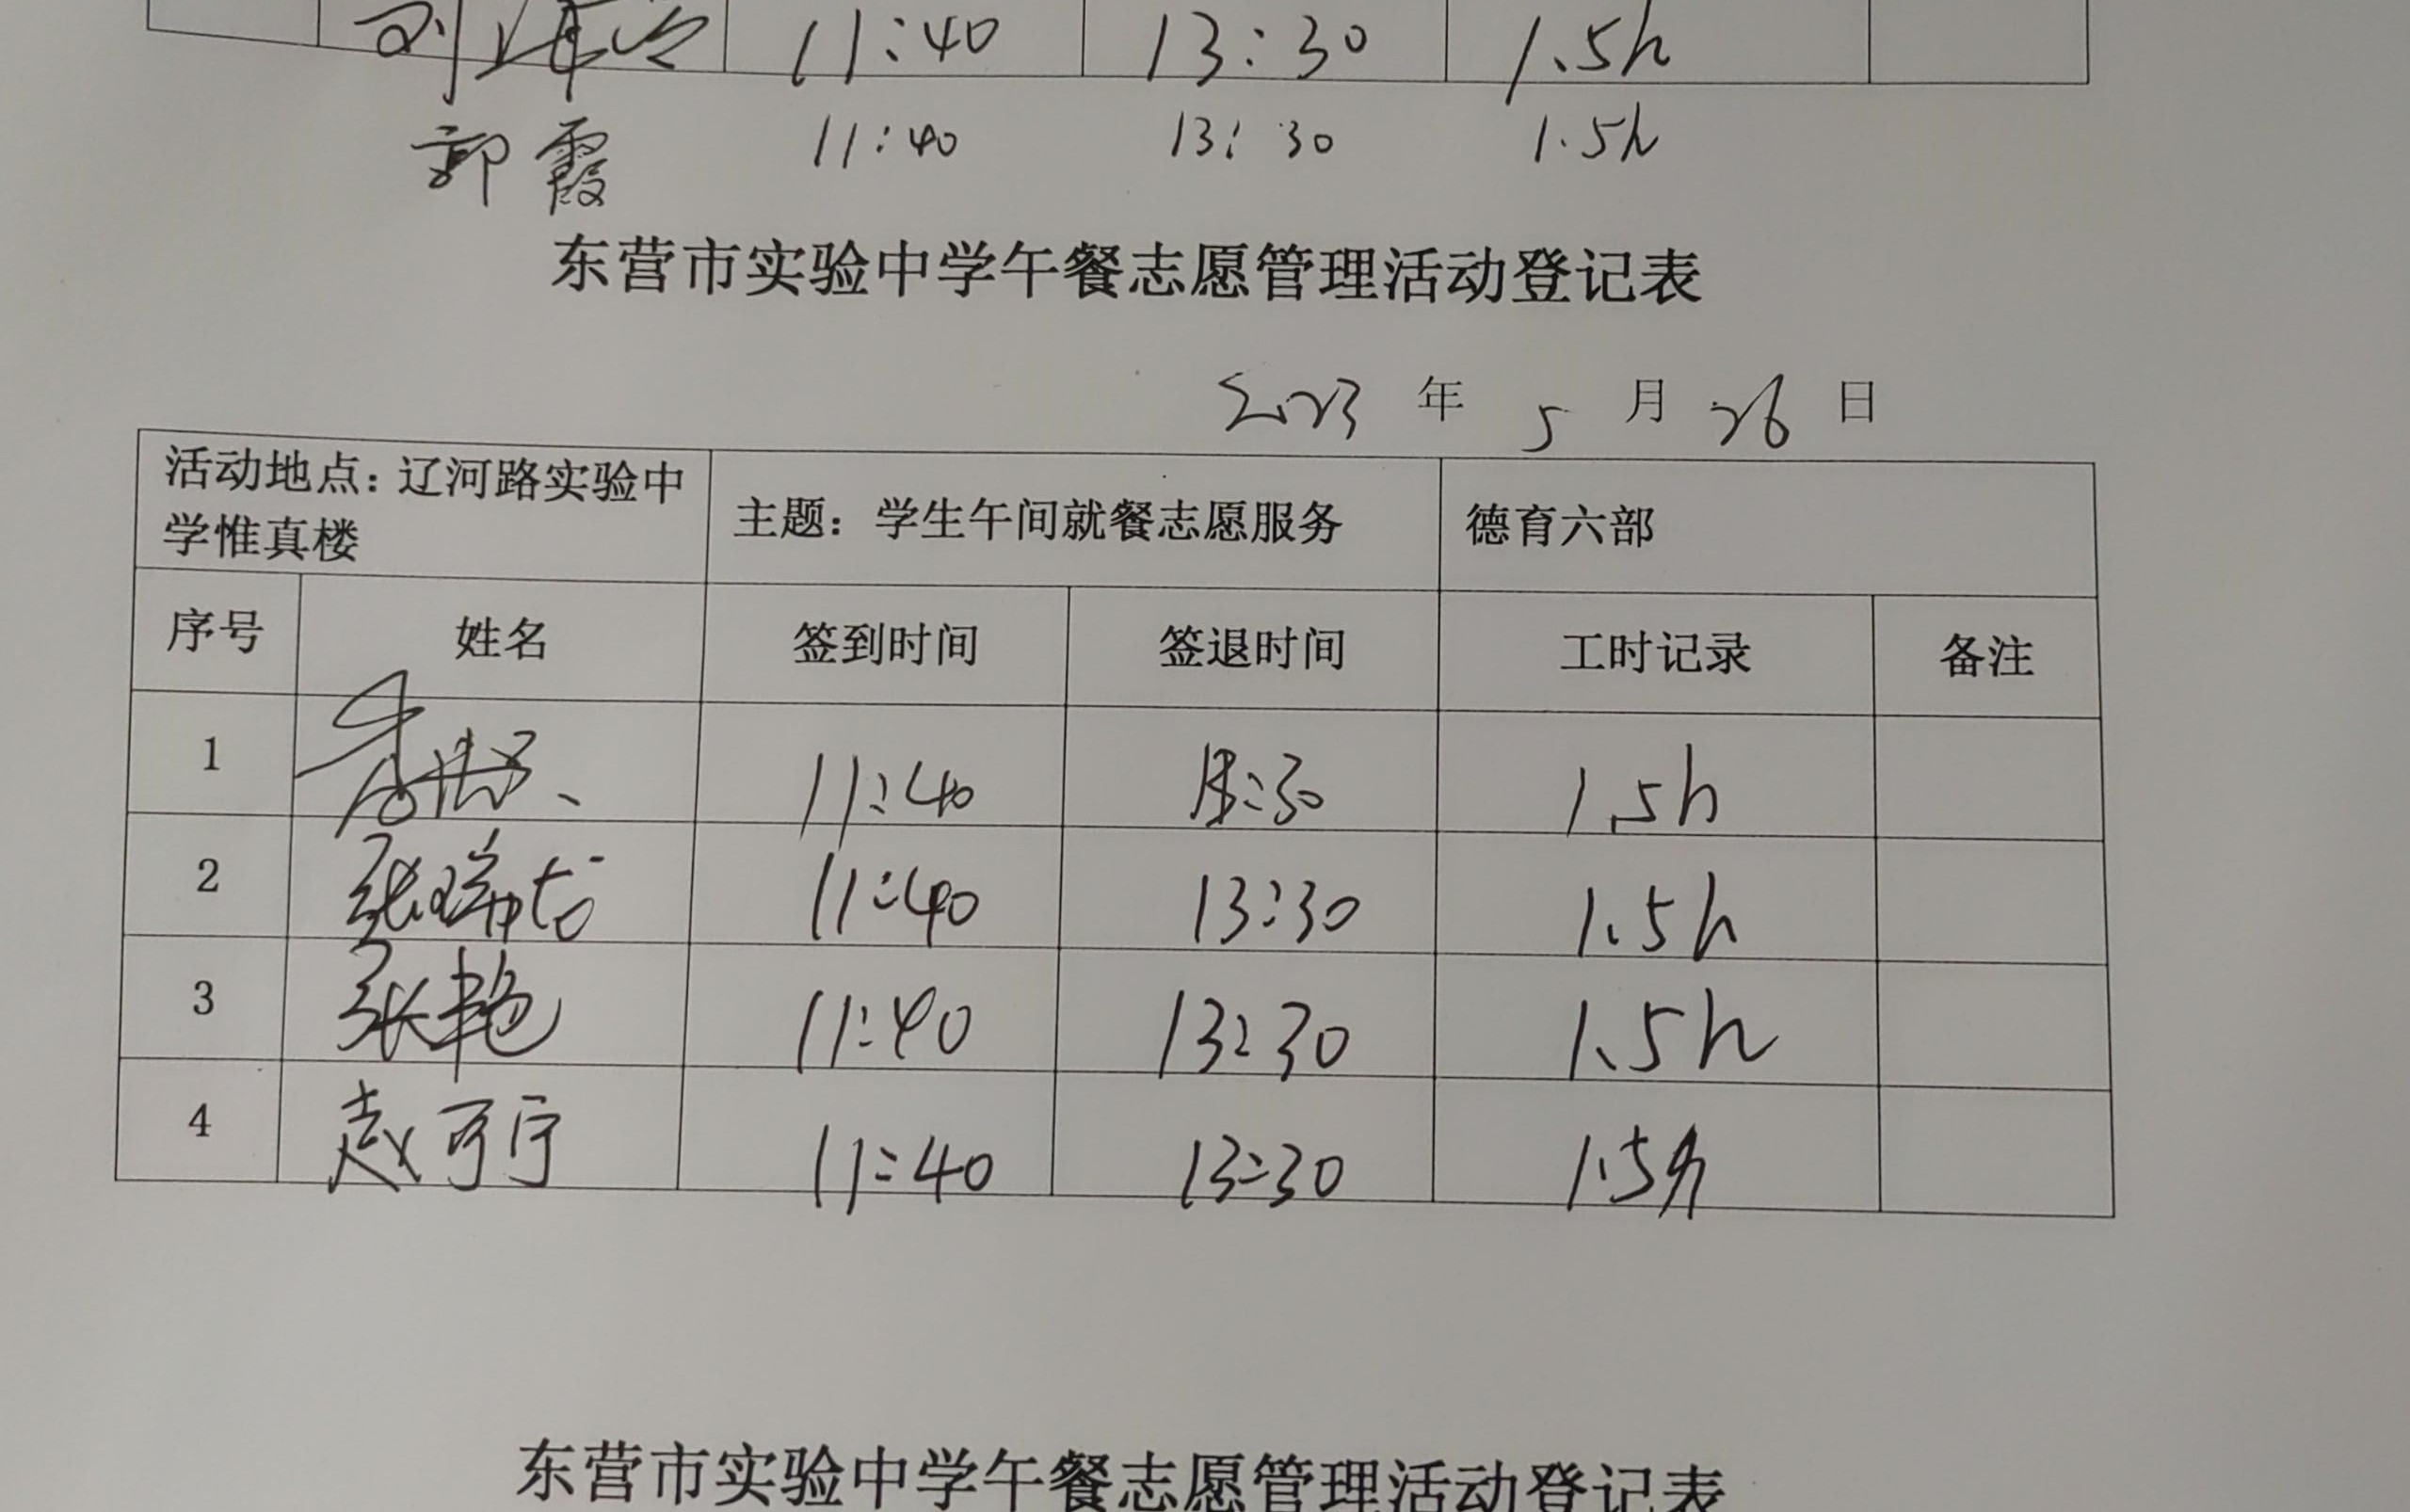 刘 11:40 13:30 1.5h
郭霞 11:40 13:30 1.5h
东营市实验中学午餐志愿管理活动登记表
2023 年 5 月 26 日
活动地点：辽河路实验中学惟真楼 主题：学生午间就餐志愿服务 德育六部
序号 姓名 签到时间 签退时间 工时记录 备注
1 11:40 13:30 1.5h
2 张瑞 11:40 13:30 1.5h
3 张艳 11:40 13:30 1.5h
4 赵可宁 11:40 13:30 1.5h
东营市实验中学午餐志愿管理活动登记表